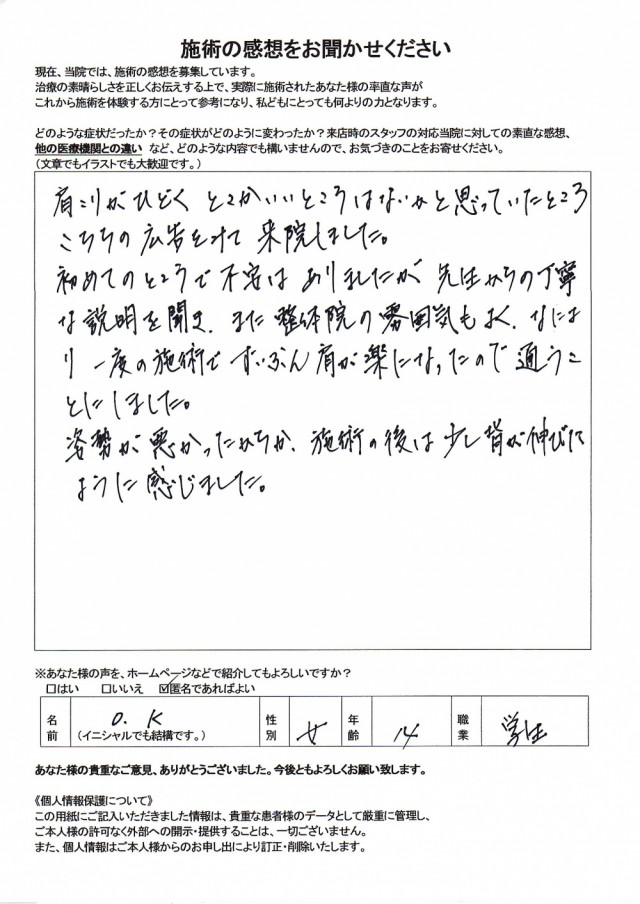 施術の感想をお聞かせください
現在、当院では、施術の感想を募集しています。
治療の素晴らしさを正しくお伝えする上で、実際に施術されたあなた様の率直な声が
これから施術を体験する方にとって参考になり、私どもにとっても何よりの力となります。
どのような症状だったか？その症状がどのように変わったか？来店時のスタッフの対応当院に対しての素直な感想、
他の医療機関との違い など、どのような内容でも構いませんので、お気づきのことをお寄せください。
（文章でもイラストでも大歓迎です。）
肩こりがひどく どこかいいところはないかと思っていたところ
こちらの広告をみて 来院しました。
初めてのところで不安は ありましたが 先生からの丁寧
な説明を聞き、また 整体院の雰囲気もよく、なによ
り 一度の施術で ずいぶん肩が楽になったので 通うこ
とにしました。
姿勢が悪かったからか、施術の後は少し背が伸びた
ように感じました。
※あなた様の声を、ホームページなどで紹介してもよろしいですか？
□はい □いいえ ☑匿名であればよい
名前 O. K （イニシャルでも結構です。） 性別 女 年齢 14 職業 学生
あなた様の貴重なご意見、ありがとうございました。今後ともよろしくお願い致します。
《個人情報保護について》
この用紙にご記入いただきました情報は、貴重な患者様のデータとして厳重に管理し、
ご本人様の許可なく外部への開示・提供することは、一切ございません。
また、個人情報はご本人様からのお申し出により訂正・削除いたします。